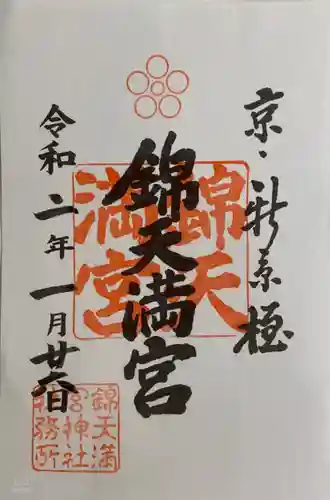 京・新京極
錦天満宮
令和二年一月廿六日
錦天
満宮
錦天満
宮神社
社務所